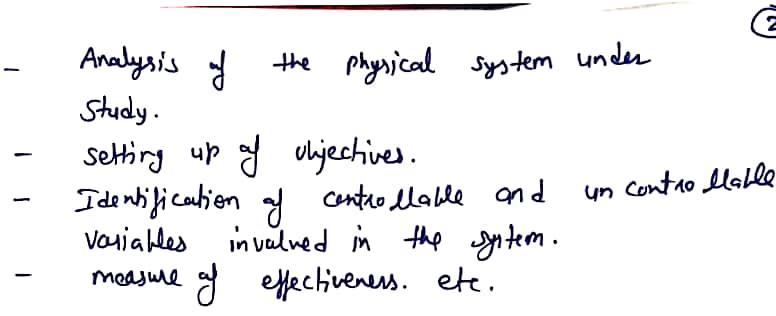 ②
- Analysis of the physical system under
Study.
- setting up of objectives.
- Identification of controllable and un controllable
variables involved in the system.
- measure of effectiveness. etc.